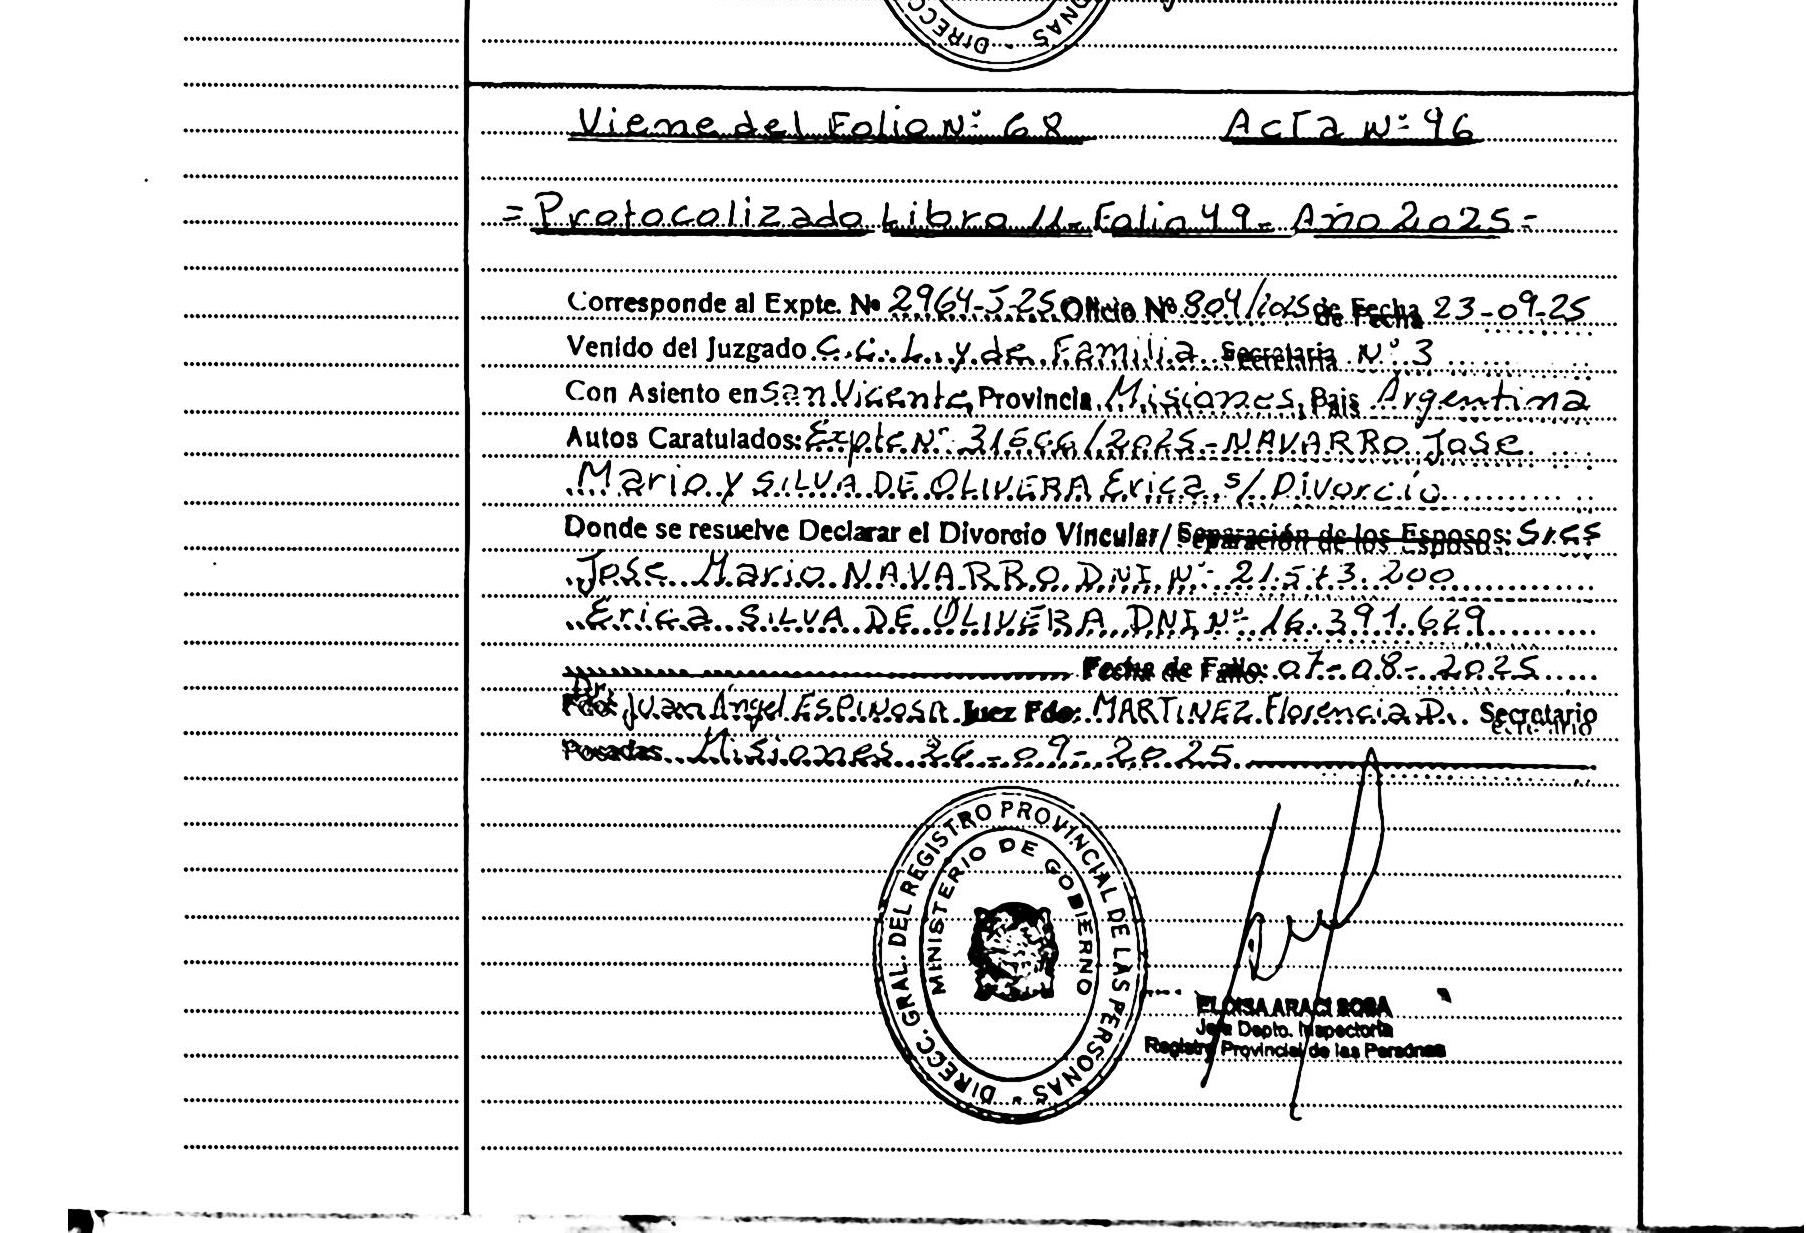 DIRECC
ONAS
Viene del Folio Nº 68 Acta Nº 96
= Protocolizado Libro 11 - Folio 49 - Año 2025 =
Corresponde al Expte. Nº 2964-5-25 Oficio Nº 804/2025 de Fecha 23-09-25
Venido del Juzgado C.C.L. y de Familia Secretaria Nº 3
Con Asiento en San Vicente, Provincia Misiones, Pais Argentina
Autos Caratulados: Expte Nº /2025 - NAVARRO Jose
Mario y SILVA DE OLIVERA Erica s/ Divorcio
Donde se resuelve Declarar el Divorcio Vincular/ Separación de los Esposos: Sres
Jose Mario NAVARRO DNI Nº
Erica SILVA DE OLIVERA DNI Nº 16.391.629
Fecha de Fallo: 07-08-2025
Dr.
Fdo: Juan Angel ESPINOSA Juez Fdo: MARTINEZ Florencia D. Secretario
Posadas Misiones 26-09-2025
DIRECC. GRAL. DEL REGISTRO PROVINCIAL DE LAS PERSONAS
MINISTERIO DE GOBIERNO
ELOISA ARACI SOSA
Jefa Depto. Inspectoria
Registro Provincial de las Personas